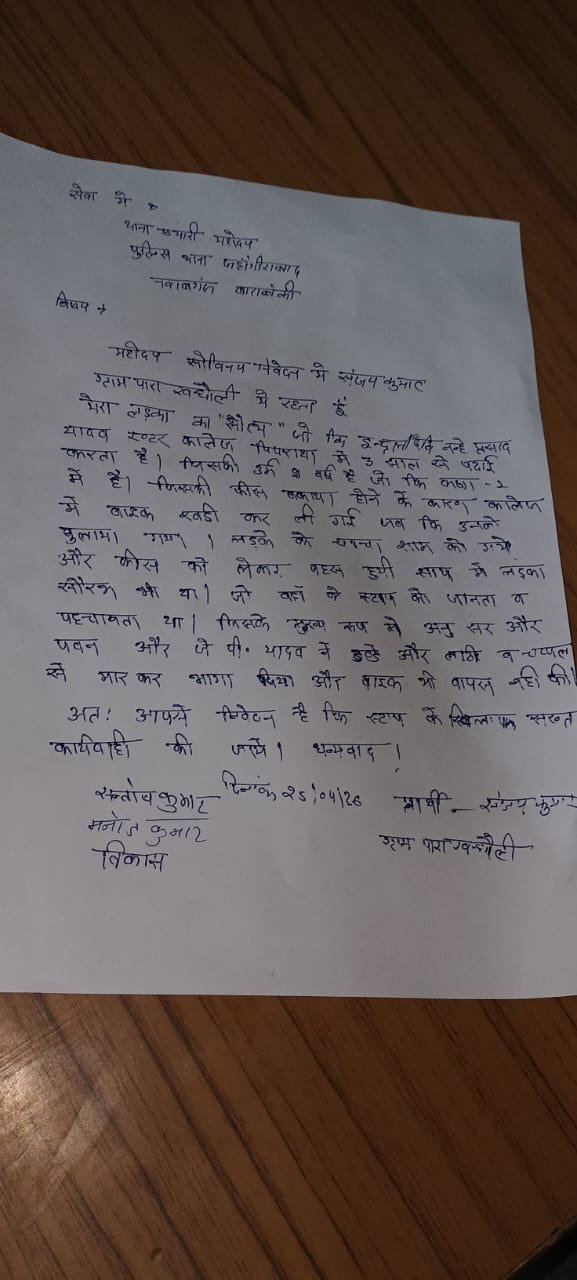 सेवा मे
थाना प्रभारी महोदय
पुलिस थाना जहांगीराबाद
नवाबगंज बाराबंकी
विषय →
महोदय सविनय निवेदन मे संजय कुमार
ग्राम पारा खन्धौली मे रहता हूँ
मेरा लड़का का जो कि इन्द्रानी देवि नन्हे प्रसाद
यादव इण्टर कालेज पिपराथा मे 3 साल से पढाई
करता है। जिसकी उर्म वर्ष है जो कि कक्षा - 2
मे है। जिसकी फीस बकाया होने के कारण कालेज
मे बाइक खडी कर ली गई जब कि उनको
बुलाया गया । लड़के के चच्चा शाम को गये
और फीस को लेकर बहस हुयी साथ मे लड़का
सौरभ भी था। जो वहाँ के स्टाप को जानता व
पहचानता था। जिसके मुख्य रूप से अनु सर और
पवन और जे पी. यादव ने डन्डे और लाठी व चप्पल
से मार कर भागा दिया और बाइक भी वापस नही की।
अतः आपसे निवेदन है कि स्टाप के खिलाफ सख्त
कार्यवाही की जाये। धन्यवाद ।
सन्तोष कुमार दिनांक 25/04/26 प्रार्थी - संजय कुमार
मनोज कुमार ग्राम पारा खन्धौली
विकास